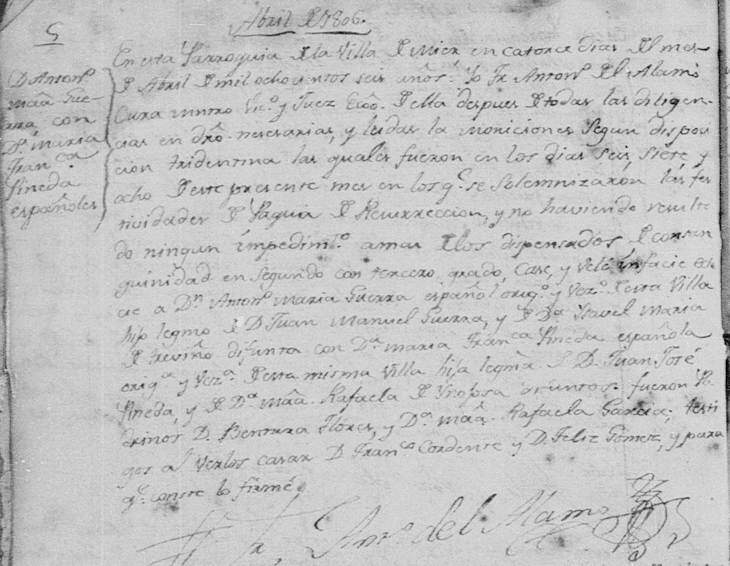 Abril de 1806.
5
D. Anton.
Maa Gue-
rra con
Da. Maria
Franca
Pineda
españoles
En esta Parroquia de la Villa de Mier en catorce dias del mes
de Abril de mil ochocientos seis años. Yo Fr Anton. del Alamo
Cura mntro Vico. y Juez Ecco. de ella despues de todas las diligen-
cias en dro. nesesarias, y leidas la moniciones segun dispoci-
cion tridentina las quales fueron en los dias seis, siete y
ocho de este presente mes en los qe. se solemnizaron las fes
tividades de Pasqua de Resurreccion, y no haviendo resulta
do ningun impedimto. amas de los dispensados de consan
guinidad en segundo con tercero grado, Case, y Velé infacie Ecle
cie a Dn. Anton. Maria Guerra español orig. y Vezo. de esta Villa
hijo legmo de D. Juan Manuel Guerra, y de Da. Isavel Maria
de Treviño difunta con Da. Maria Franca Pineda española
origa. y Veza. de esta misma Villa hija legma. de D. Juan José
Pineda, y de Da. Maa. Rafaela de Ynojosa difuntos: fueron Pa
drinos D. Ventura Flores, y Da. Maa. Rafaela Garcia; testi
gos al Verlos casar D. Franco Cordente y D. Feliz Gomez, y para
qe. conste lo firmé
Fr. Anto. del Alamo